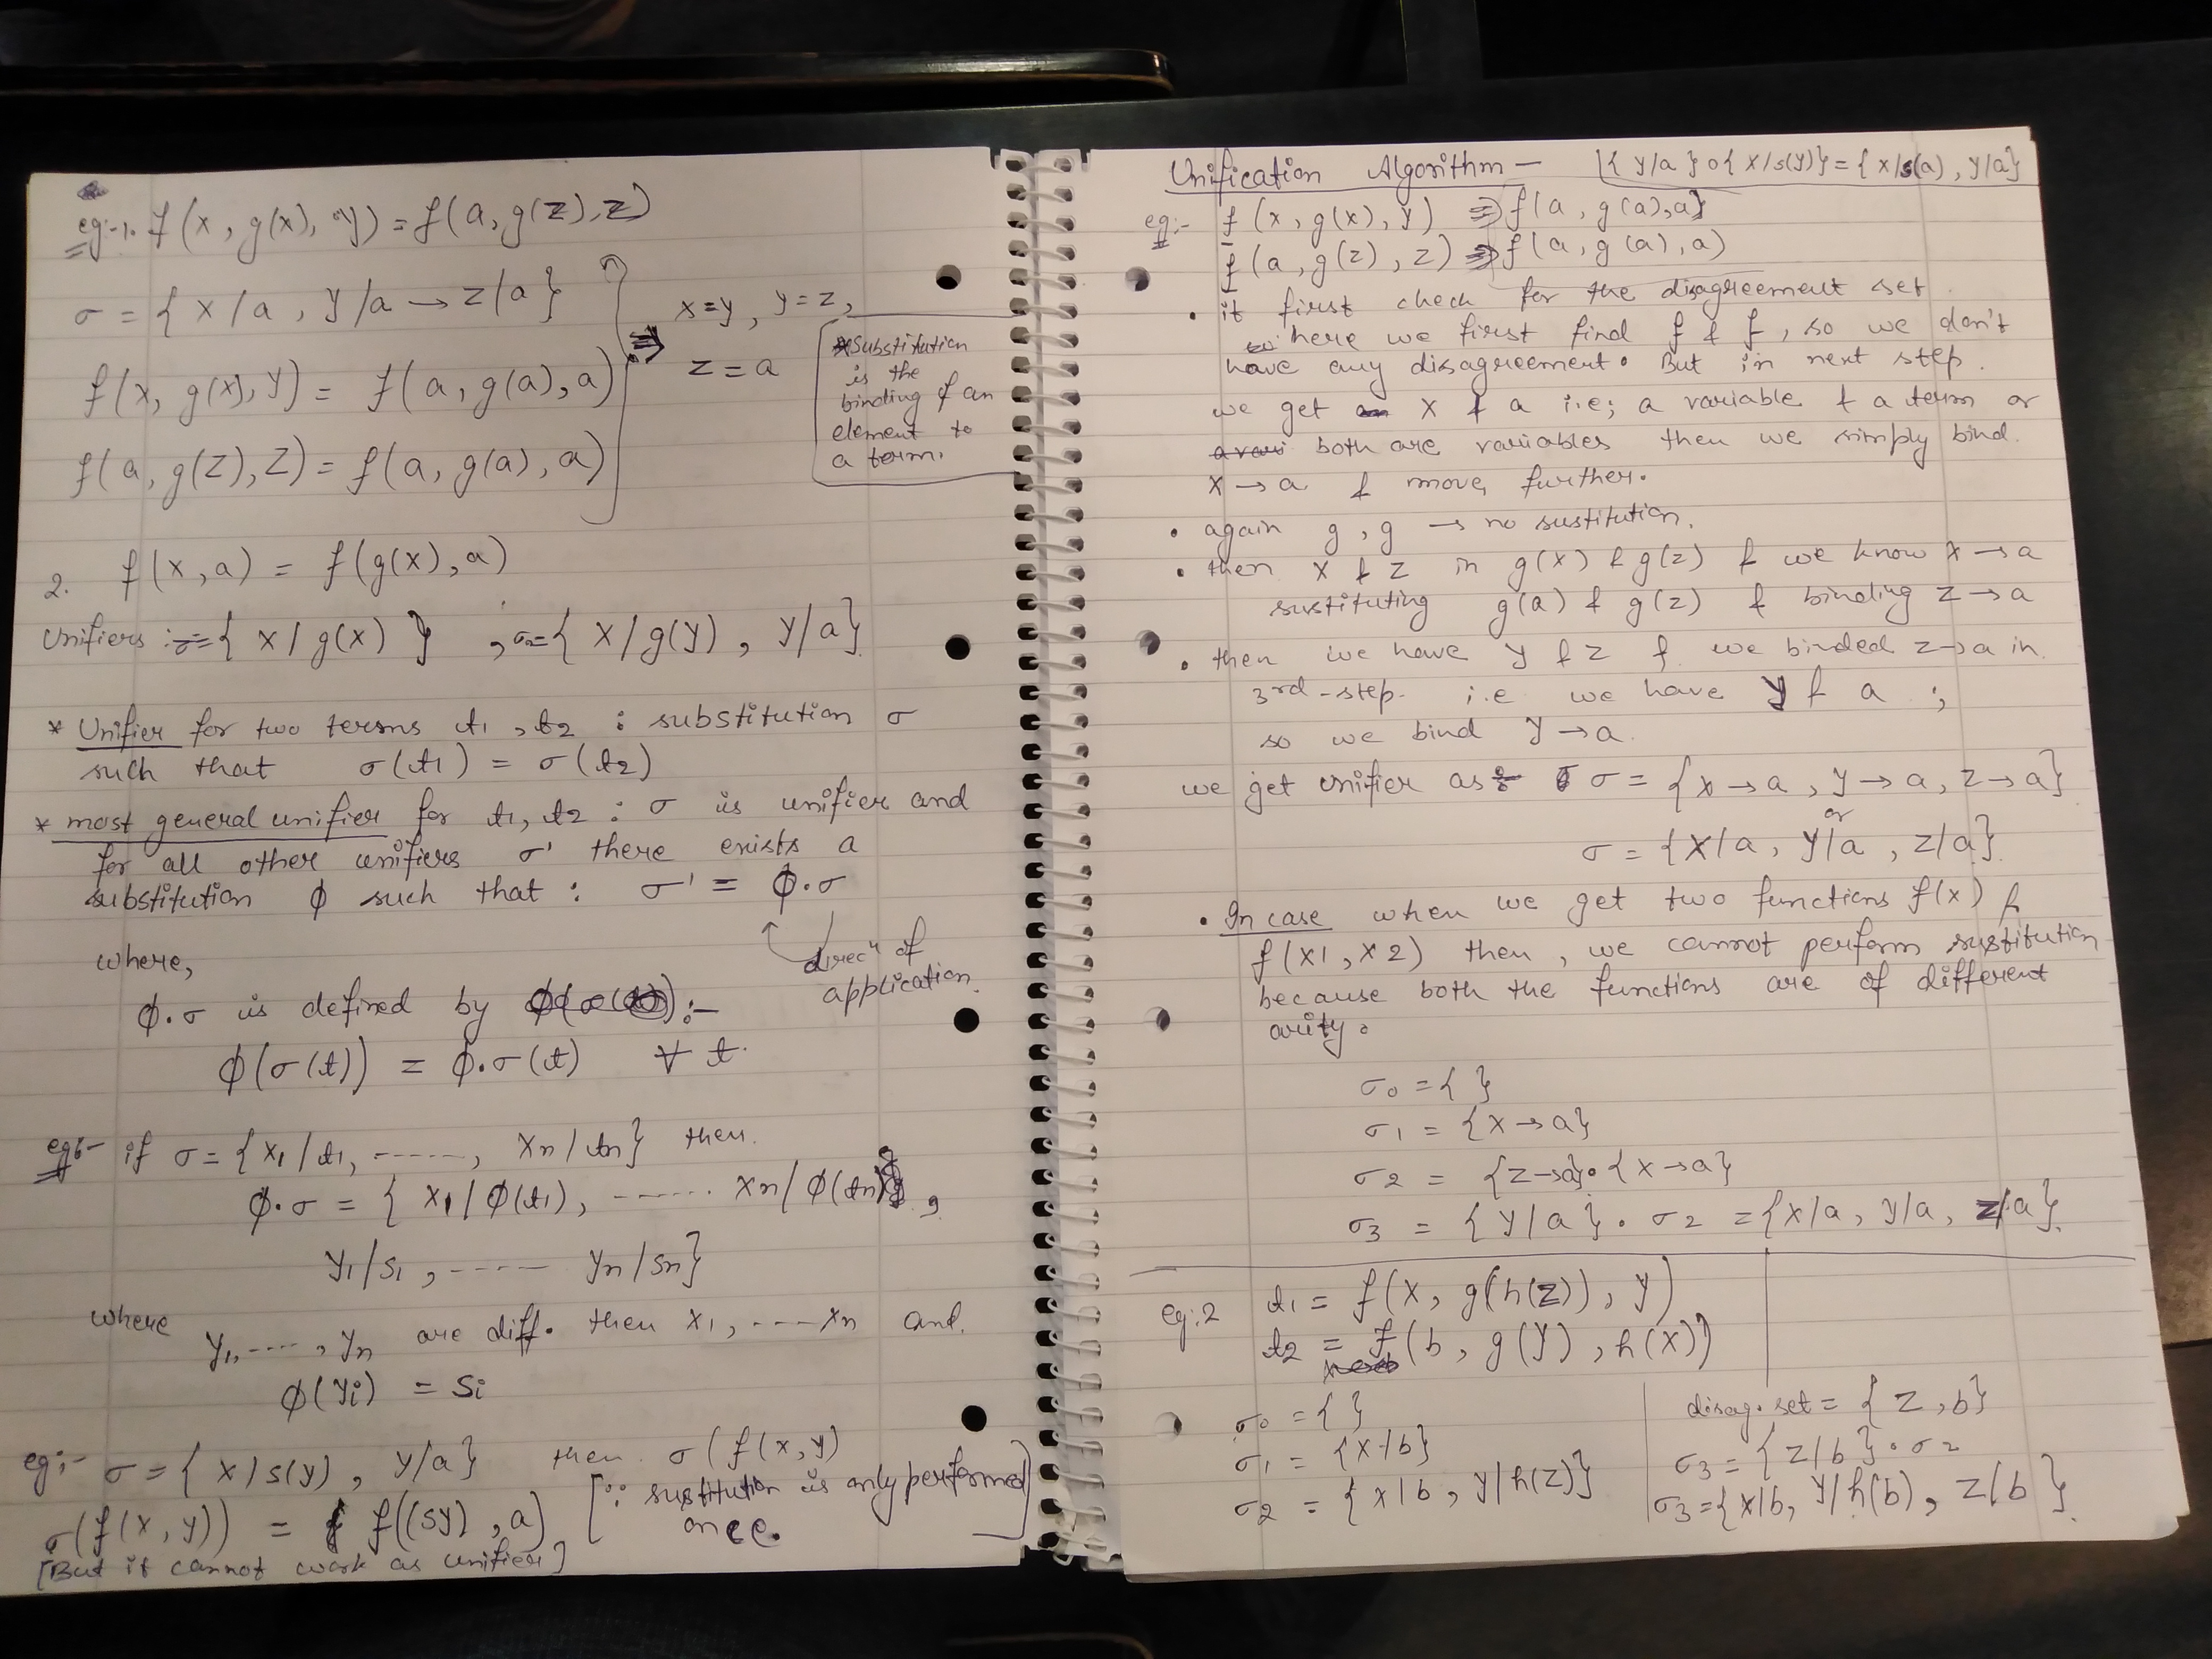 eg:-1. f(x, g(x), y) = f(a, g(z), z)
σ = { x/a , y/a → z/a }
f(x, g(x), y) = f(a, g(a), a)
f(a, g(z), z) = f(a, g(a), a)
⇒ x=y, y=z,
z = a
*Substitution
is the
binding of an
element to
a term.
2. f(x, a) = f(g(x), a)
Unifiers := { x / g(x) } , σ= { x/g(y) , y/a }
* Unifier for two terms t1, t2 : substitution σ
such that σ(t1) = σ(t2)
* most general unifier for t1, t2 : σ is unifier and
for all other unifiers σ' there exists a
substitution ϕ such that : σ' = ϕ.σ
direcⁿ of
application.
where,
ϕ.σ is defined by :-
ϕ(σ(t)) = ϕ.σ(t) ∀ t.
eg:- if σ = { x1/t1, ------, xn/tn} then.
ϕ.σ = { x1/ϕ(t1), ------- xn/ϕ(tn) ,
y1/s1 , ----- yn/sn}
where
y1,----, yn are diff. then x1, ----xn and.
ϕ(yi) = si
eg:- σ = { x/s(y) , y/a } then σ(f(x,y)
σ(f(x, y)) = f((sy) , a) [∵ sustitution is only performed
once.]
[But it cannot work as unifier]
Unification Algorithm — [{ y/a } o { x/s(y)} = { x/s(a) , y/a}
eg:- f (x, g(x), y) ⇒ f(a, g(a), a)
f (a, g(z), z) ⇒ f(a, g(a), a)
• it first check for the disagreement set.
here we first find f & f, so we don't
have any disagreement. But in next step.
we get x & a i.e; a variable & a term or
both are variables then we simply bind.
x → a & move further.
• again g, g → no sustitution.
• then x & z in g(x) & g(z) & we know x → a
sustituting g(a) & g(z) & binding z → a
• then we have y & z & we binded z→a in.
3rd-step. i.e we have y & a ;
so we bind y → a.
we get unifier as σ = {x → a, y → a, z → a}
or
σ = {x/a, y/a , z/a}
• In case when we get two functions f(x) &
f(x1, x2) then, we cannot perform sustitution
because both the functions are of different
arity.
σ0 = { }
σ1 = {x → a}
σ2 = {z → a}•{x → a}
σ3 = {y/a}. σ2 = {x/a, y/a, z/a}.
eg:2 t1 = f(x, g(h(z)), y)
t2 = f(b, g(y), h(x))
σ0 = { }
σ1 = {x/b}
σ2 = {x/b, y/h(z)}
disag. set = { z , b}
σ3 = { z/b }. σ2
σ3 = {x/b, y/h(b), z/b }.